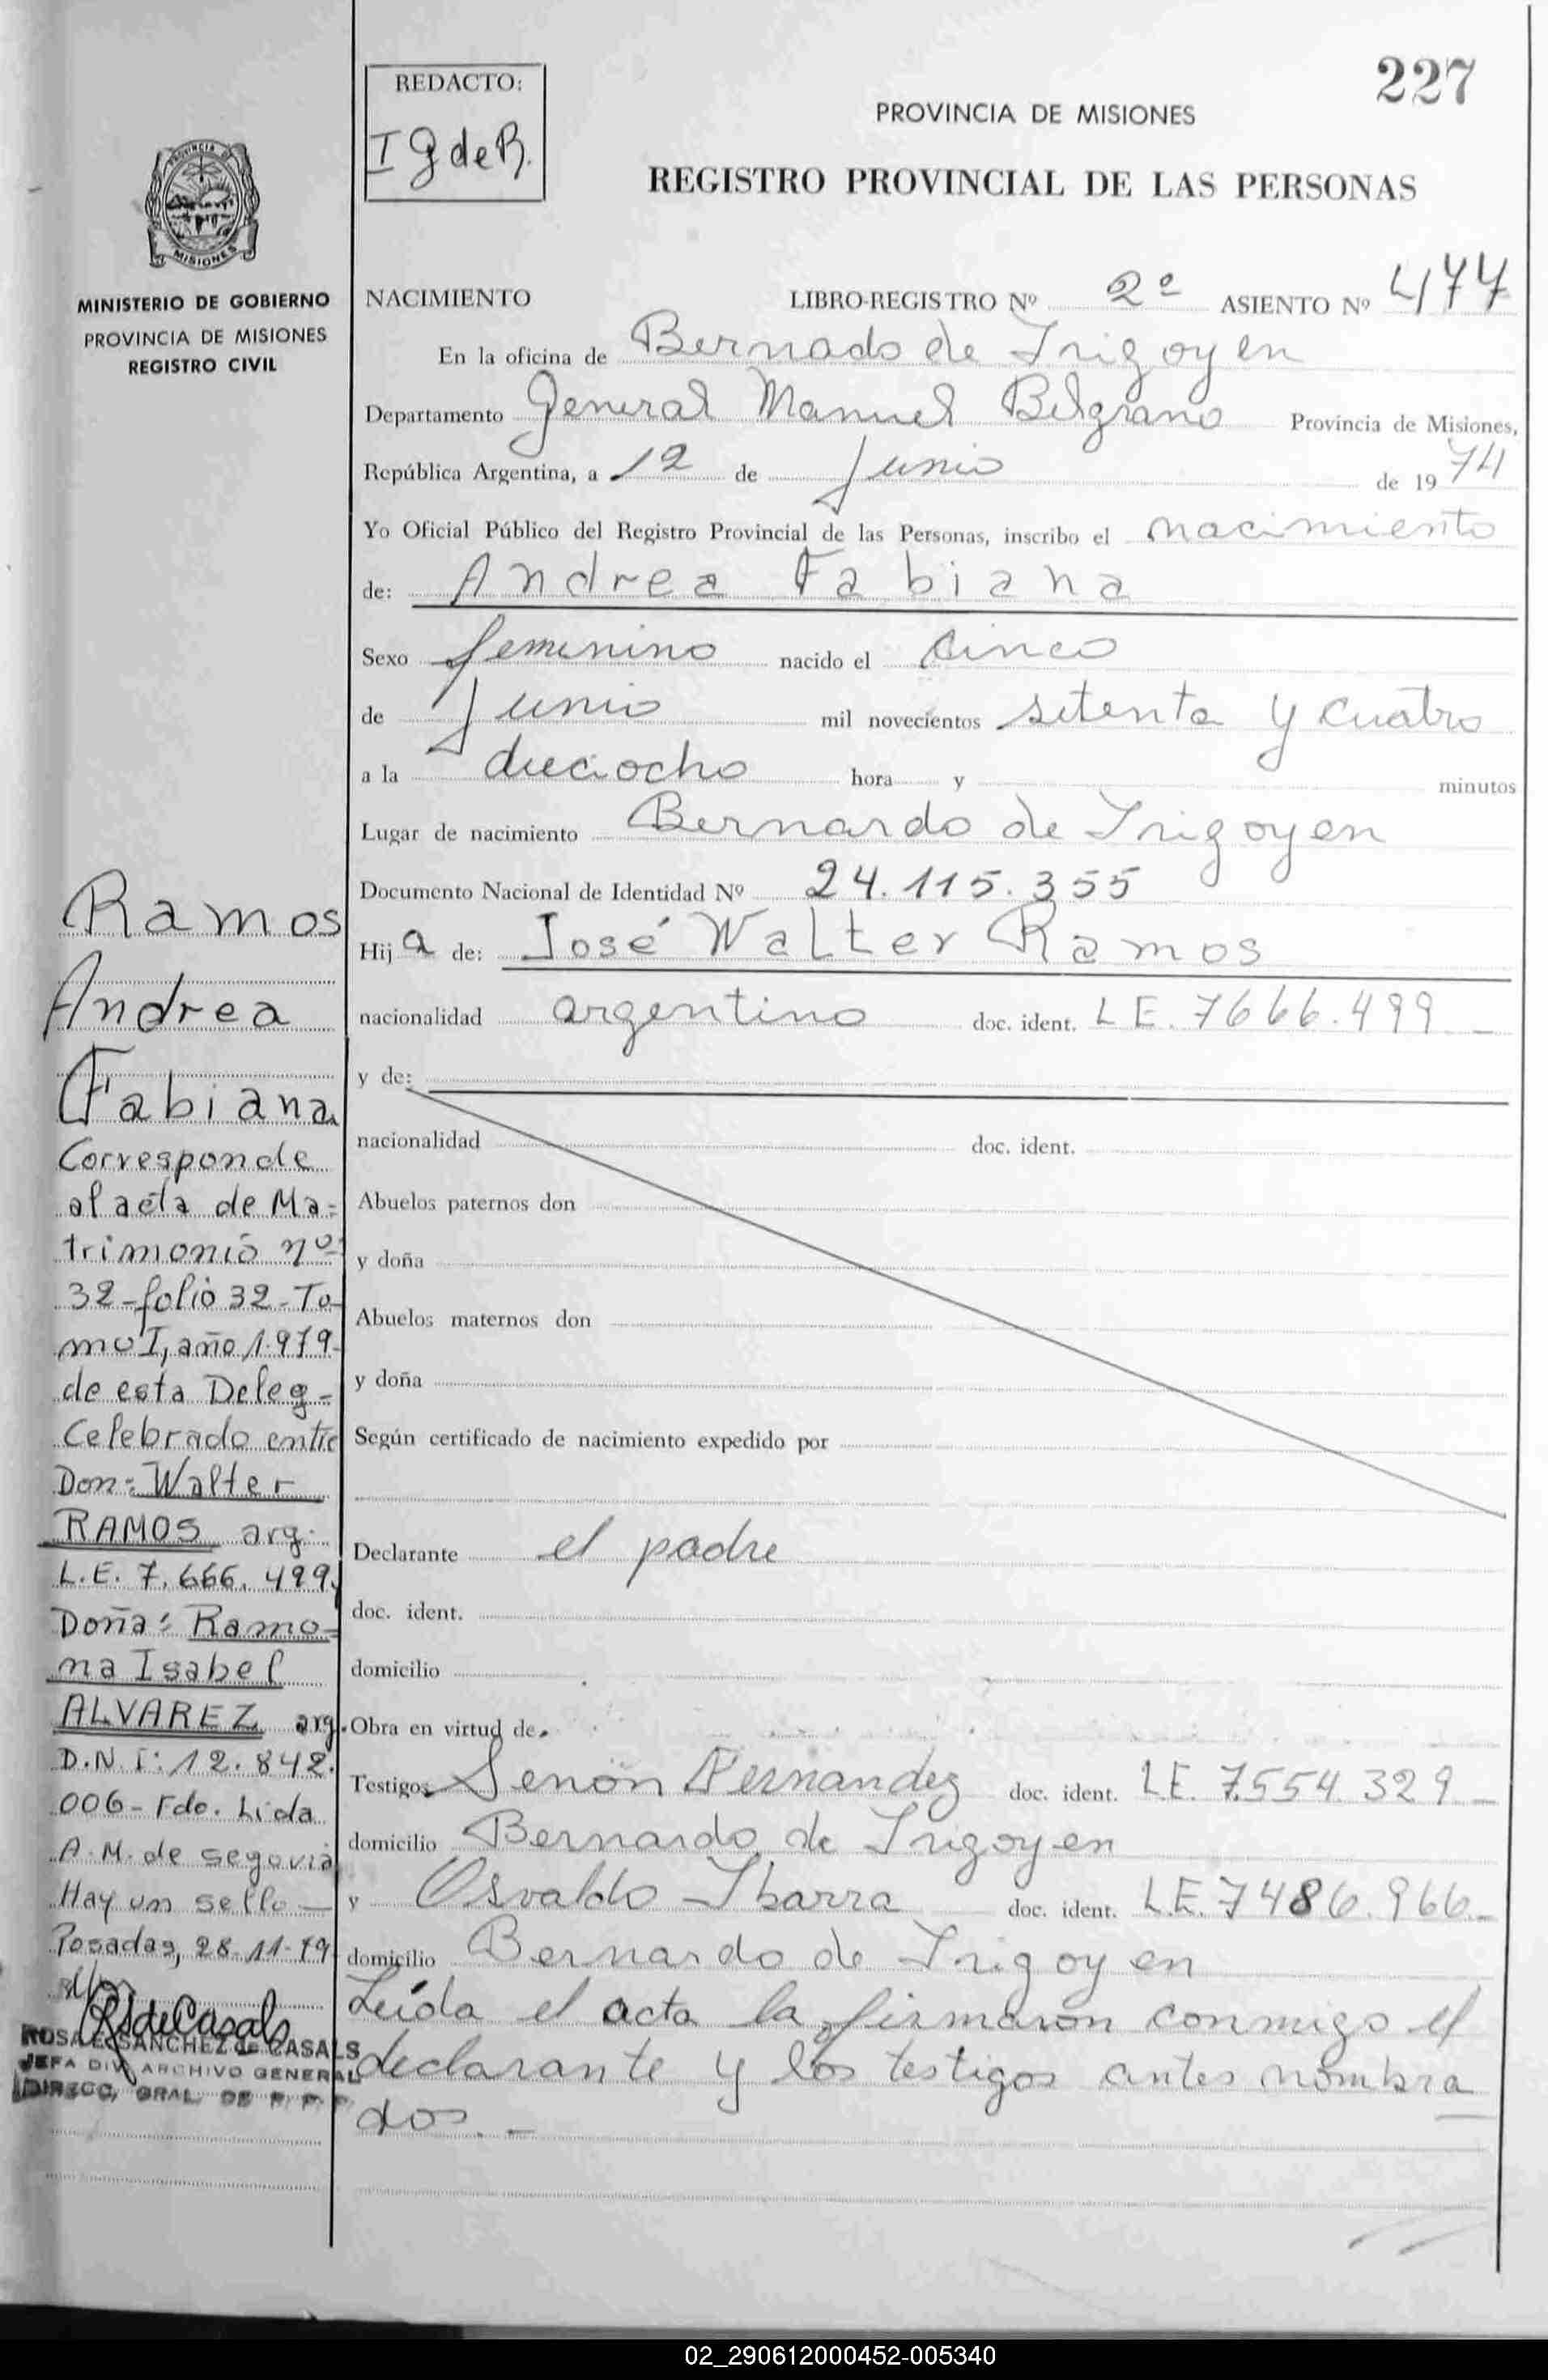 227
REDACTO:
I G de B.
PROVINCIA DE MISIONES
REGISTRO PROVINCIAL DE LAS PERSONAS
PROVINCIA DE
MISIONES
MINISTERIO DE GOBIERNO
PROVINCIA DE MISIONES
REGISTRO CIVIL
NACIMIENTO LIBRO-REGISTRO Nº 2º ASIENTO Nº 477
En la oficina de Bernado de Irigoyen
Departamento General Manuel Belgrano Provincia de Misiones,
República Argentina, a 12 de Junio de 1974
Yo Oficial Público del Registro Provincial de las Personas, inscribo el nacimiento
de: Andrea Fabiana
Sexo femenino nacido el cinco
de Junio mil novecientos setenta y cuatro
a la dieciocho hora y minutos
Lugar de nacimiento Bernardo de Irigoyen
Documento Nacional de Identidad Nº 24.115.355
Hija de: José Walter Ramos
nacionalidad argentino doc. ident. LE. 7666.499
y de:
nacionalidad doc. ident.
Abuelos paternos don
y doña
Abuelos maternos don
y doña
Según certificado de nacimiento expedido por
Declarante el padre
doc. ident.
domicilio
Obra en virtud de
Testigos Senón Fernandez doc. ident. LE. 7.554.329
domicilio Bernardo de Irigoyen
y Osvaldo Ibarra doc. ident. L.E. 7486.966
domicilio Bernardo de Irigoyen
Leída el acta la firmaron conmigo el
declarante y los testigos antes nombra
dos. -
Ramos
Andrea
Fabiana
Corresponde
al acta de Ma=
trimonio nº
32-folio 32-To-
mo I, año 1.979-
de esta Deleg=
Celebrado entre
Don: Walter
RAMOS arg.
L.E. 7.666.499 y
Doña: Ramo=
na Isabel
ALVAREZ arg.
D.N.I: 12.842.
006- Fdo. Lida
A.M. de Segovia
Hay un sello -
Posadas, 28-11-79
ROSA E. SANCHEZ de CASALS
JEFA DIV. ARCHIVO GENERAL
DIRECC. GRAL. DE R. P. P.
02_290612000452-005340